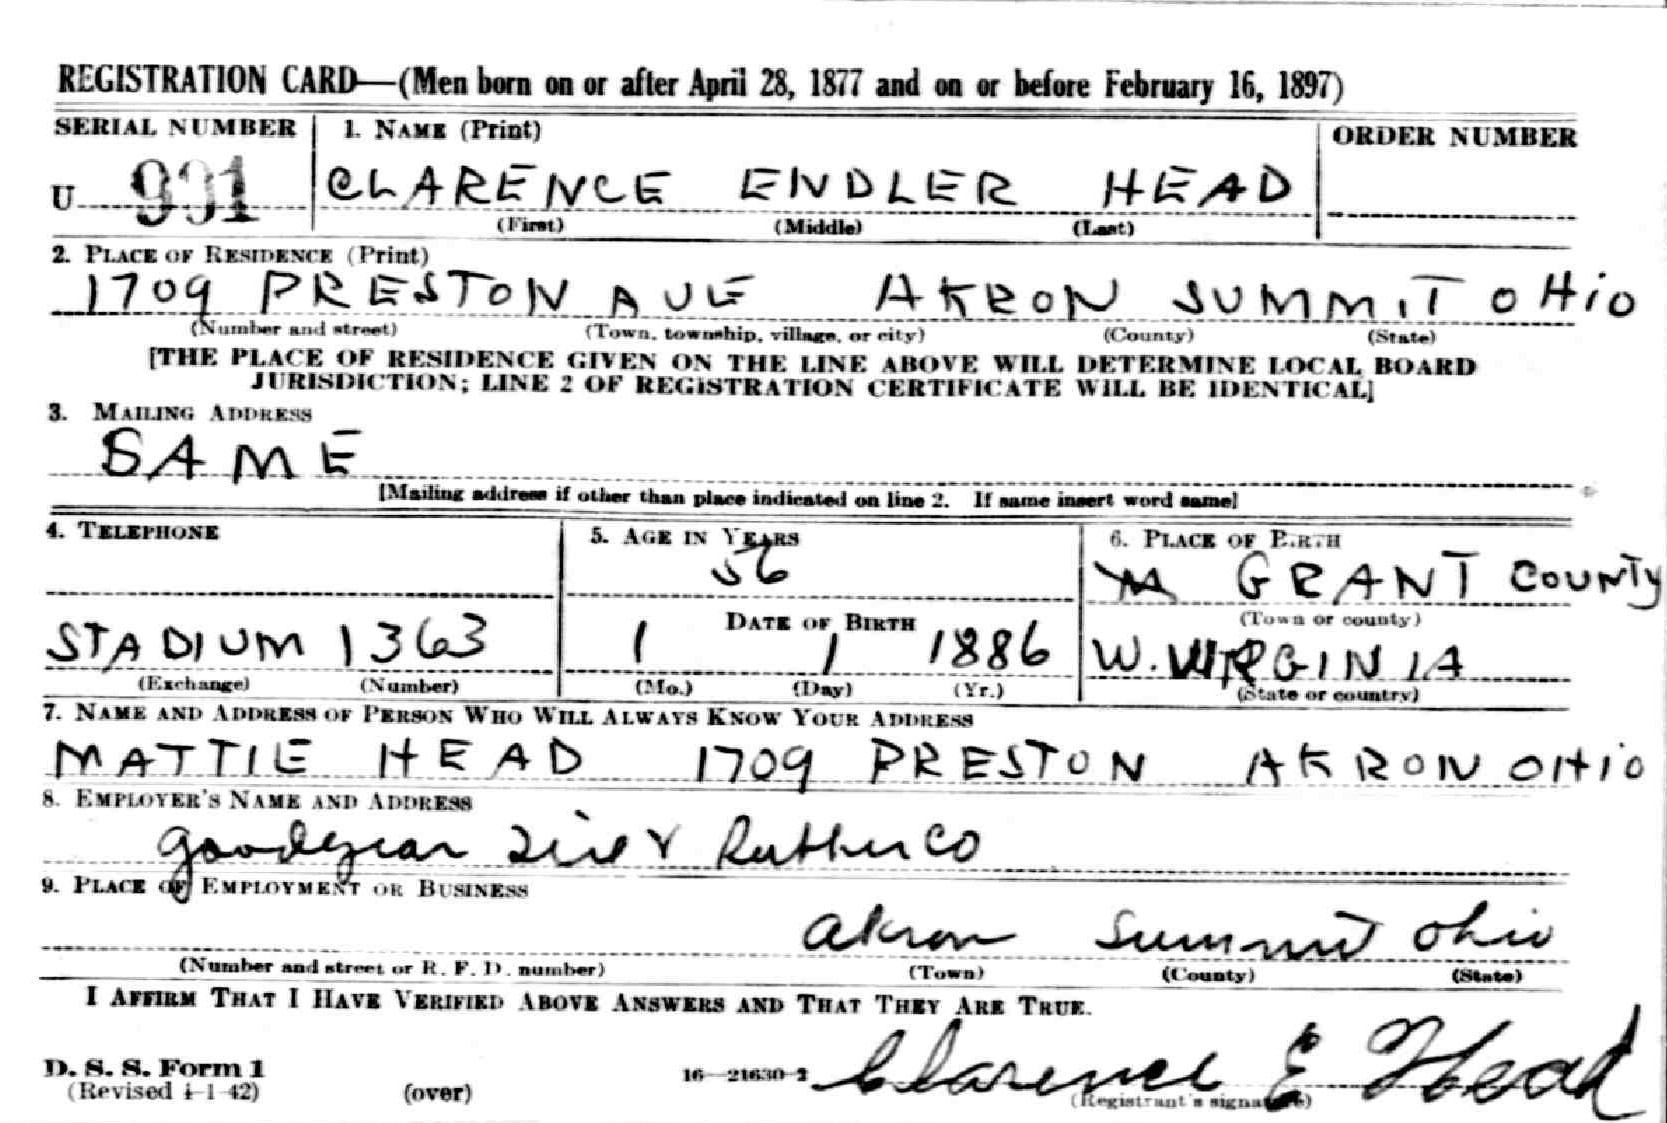 REGISTRATION CARD—(Men born on or after April 28, 1877 and on or before February 16, 1897)
SERIAL NUMBER 1. NAME (Print) ORDER NUMBER
U 991 CLARENCE ENDLER HEAD
(First) (Middle) (Last)
2. PLACE OF RESIDENCE (Print)
1709 PRESTON AVE AKRON SUMMIT OHIO
(Number and street) (Town, township, village, or city) (County) (State)
[THE PLACE OF RESIDENCE GIVEN ON THE LINE ABOVE WILL DETERMINE LOCAL BOARD
JURISDICTION; LINE 2 OF REGISTRATION CERTIFICATE WILL BE IDENTICAL]
3. MAILING ADDRESS
SAME
[Mailing address if other than place indicated on line 2. If same insert word same]
4. TELEPHONE 5. AGE IN YEARS 6. PLACE OF BIRTH
56 GRANT COUNTY
DATE OF BIRTH (Town or county)
STADIUM 1363 1 1 1886 W. VIRGINIA
(Exchange) (Number) (Mo.) (Day) (Yr.) (State or country)
7. NAME AND ADDRESS OF PERSON WHO WILL ALWAYS KNOW YOUR ADDRESS
MATTIE HEAD 1709 PRESTON AKRON OHIO
8. EMPLOYER'S NAME AND ADDRESS
Goodyear Tire & Rubber CO
9. PLACE OF EMPLOYMENT OR BUSINESS
Akron Summit Ohio
(Number and street or R. F. D. number) (Town) (County) (State)
I AFFIRM THAT I HAVE VERIFIED ABOVE ANSWERS AND THAT THEY ARE TRUE.
D. S. S. Form 1
(Revised 4-1-42) (over) 16—21630-2 Clarence E Head
(Registrant's signature)